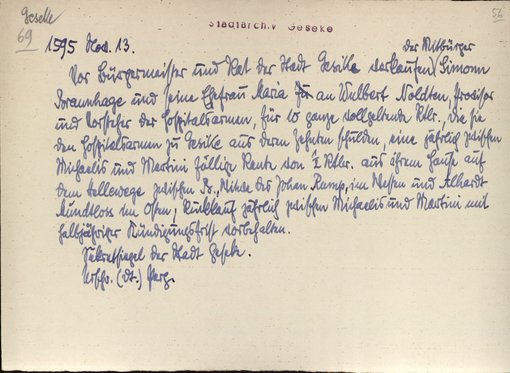 Geseke
69
56
Stadtarchiv Geseke
1595 Nov. 13.
der Mitbürger
Vor Bürgermeister und Rat der Stadt Geseke verkaufen (Simonn
und seine Ehefrau Maria an Wulbert Noldten, Provisor
und Vorsteher der Hospitalsarmen, für 10 ganze vollgeltende Rtlr., die sie
den Hospitalsarmen zu Geseke aus dem Zehnten schulden, eine jährlich zwischen
Michaelis und Martini fällige Rente von ½ Rtlr. aus ihrem Hause auf
dem Hellewege zwischen Johan Rump, im Westen und Alhardt
im Osten; Rückkauf jährlich zwischen Michaelis und Martini mit
halbjähriger Kündigungsfrist vorbehalten.
Sekretsiegel der Stadt Geseke.
Urschr. (dt.) Perg.